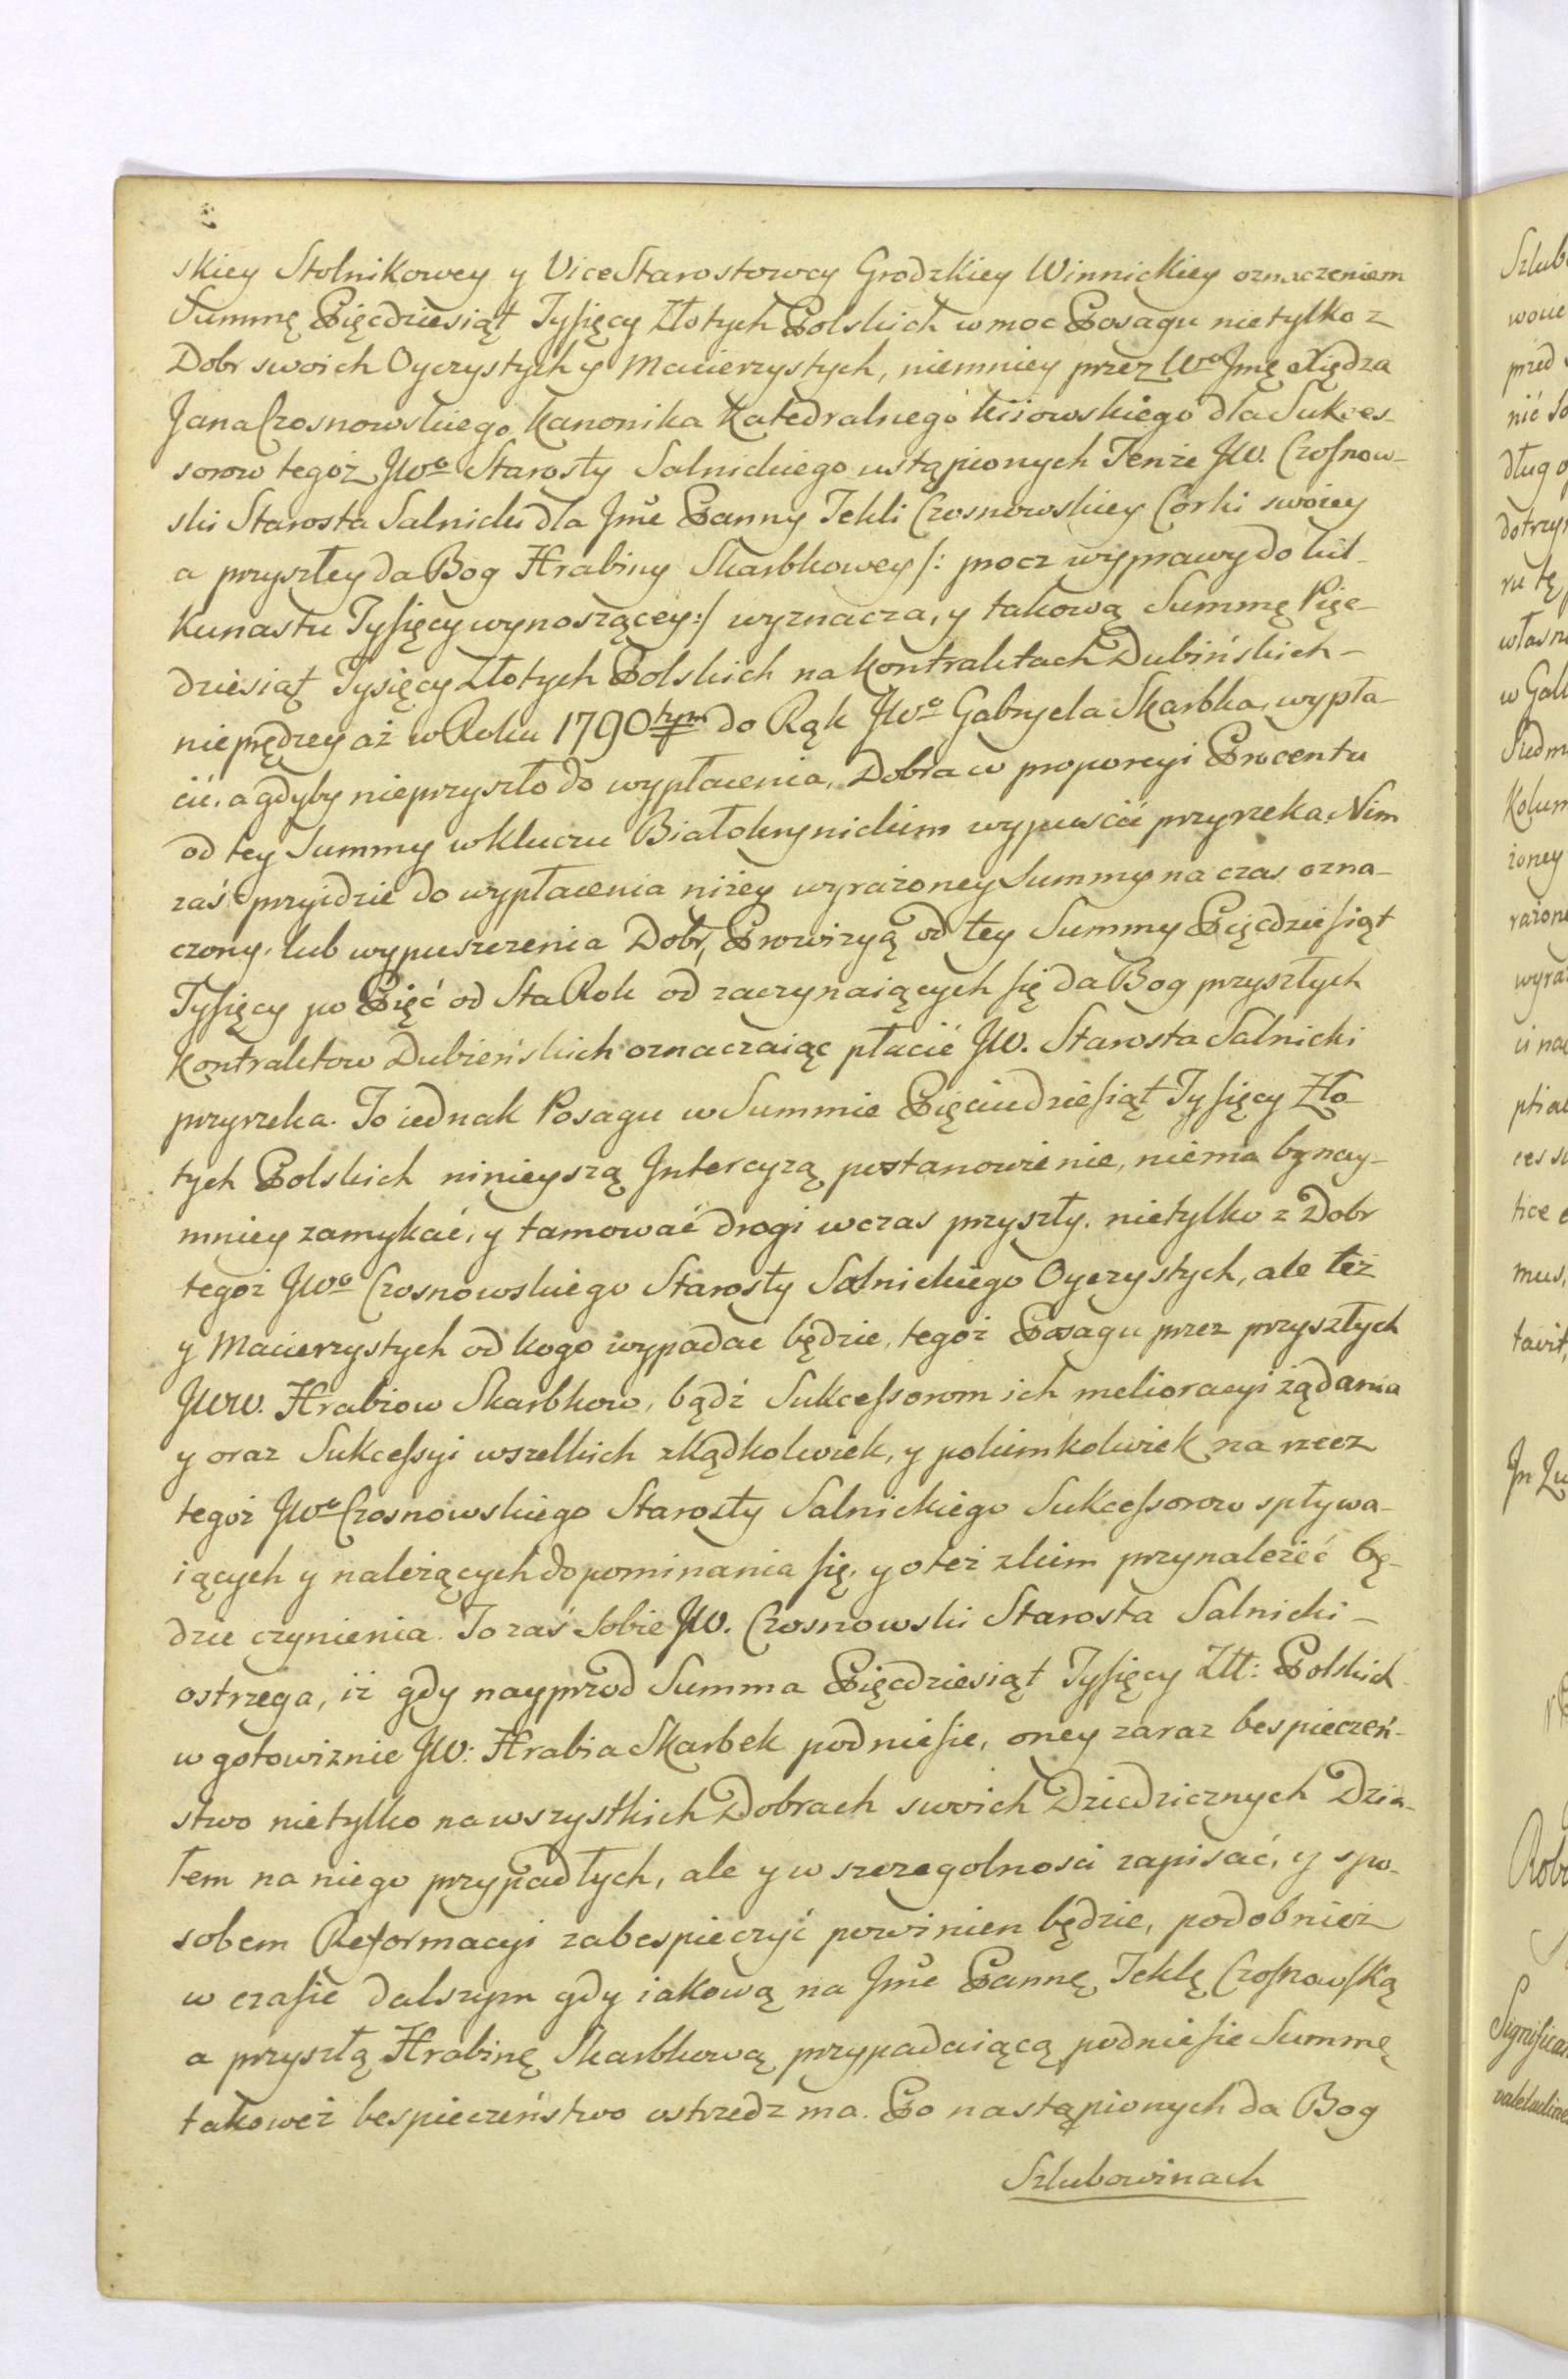 skiey Stolnikowey y ViceStarostowey Grodzkiey Winnickiey oznaczeniem
Summę Pięcdziesiąt Tysięcy Złotych Polskich w moc Posagu nietylko z
Dobr swoich Oyczystych y Macierzystych, niemniey przez Wo Jmę Xiędza
Jana Czosnowskiego Kanonika Katedralnego Kiiowskiego dla Sukces-
sorow tegoż JWo Starosty Salnickiego ustąpionych Tenże JW. Czosnow-
ski Starosta Salnicki dla Jmć Panny Tekli Czosnowskiey Corki swoiey
a przyszłey da Bog Hrabiny Skarbkowey /: procz wyprawy do kil-
kunastu Tysięcy wynoszącey :/ wyznacza, y takową Summę Pięć-
dziesiąt Tysięcy Złotych Polskich na Kontraktach Dubińskich -
nieprędzey aż w Roku 1790tym do Rąk JWo Gabryela Skarbka, wypła-
cić, a gdyby nieprzyszło do wypłacenia, Dobra w proporcyi Procentu
od tey Summy w Kluczu Białokrynickim wypuścić przyrzeka. Nim
zaś przyidzie do wypłacenia niżey wyrażoney Summy na czas ozna-
czony, lub wypuszczenia Dobr, Prowizyą od tey Summy Pięcdziesiąt
Tysięcy po Pięć od Sta Rok od zaczynaiących się da Bog przyszłych
Kontraktow Dubieńskich oznaczaiąc płacić JW. Starosta Salnicki
przyrzeka. To iednak Posagu w Summie Pięciudziesiąt Tysięcy Zło
tych Polskich ninieyszą Intercyzą postanowienie, niema bynay-
mniey zamykać, y tamować drogi w czas przyszły, nietylko z Dobr
tegoż JWo Czosnowskiego Starosty Salnickiego Oyczystych, ale też
y Macierzystych od kogo wypadać będzie, tegoż Posagu przez przyszłych
JWW. Hrabiow Skarbkow, bądź Sukcessorom ich melioracyi żądania
y oraz Sukcessyi wszelkich zkądkolwiek, y pokimkolwiek na rzecz
tegoż JWo Czosnowskiego Starosty Salnickiego Sukcessorow spływa-
iących y należących dopominania się, y oteż zkim przynależeć bę-
dzie czynienia. To zaś sobie JW. Czosnowski Starosta Salnicki -
ostrzega, iż gdy nayprzod Summa Pięcdziesiąt Tysięcy Złł: Polskich
w gotowiznie JW: Hrabia Skarbek podniesie, oney zaraz bespieczeń-
stwo nietylko na wszystkich Dobrach swoich Dziedzicznych Dzia-
łem na niego przypadłych, ale y w szczegolnosci zapisać, y spo-
sobem Reformacyi zabespieczyć powinien będzie, podobnież
w czasie dalszym gdy iakową na Jmć Pannę Teklę Czosnowską
a przyszłą Hrabinę Skarbkową przypadaiącą podniesie Summę
takoweż bespieczeństwo ostrzedz ma. Po nastąpionych da Bog
Szlubowinach